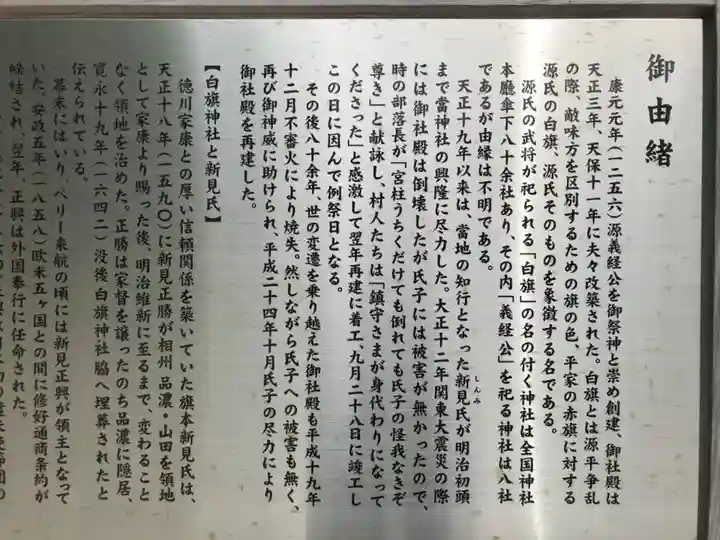 御由緒
康元元年（一二五六）源義経公を御祭神と崇め創建、御社殿は
天正三年、天保十一年に夫々改築された。白旗とは源平争乱
の際、敵味方を区別するための旗の色、平家の赤旗に対する
源氏の白旗、源氏そのものを象徴する名である。
源氏の武将が祀られる「白旗」の名の付く神社は全国神社
本庁傘下八十余社あり、その内「義経公」を祀る神社は八社
であるが由縁は不明である。
天正十九年以来は、當地の知行となった新見氏が明治初頭
しんみ
まで當神社の興隆に尽力した。大正十二年関東大震災の際
には御社殿は倒壊したが氏子には被害が無かったので、
時の部落長が「宮柱うちくだけても倒れても氏子の怪我なきぞ
尊き」と献詠し、村人たちは「鎮守さまが身代わりになって
くださった」と感激して翌年再建に着工九月二十八日に竣工し
この日に因んで例祭日となる。
その後八十余年、世の変遷を乗り越えた御社殿も平成十九年
十二月不審火により焼失。然しながら氏子への被害も無く、
再び御神威に助けられ、平成二十四年十月氏子の尽力により
御社殿を再建した。
【白旗神社と新見氏】
徳川家康との厚い信頼関係を築いていた旗本新見氏は、
天正十八年（一五九〇）に新見正勝が相州 品濃・山田を領地
として家康より賜った後、明治維新に至るまで、変わること
なく領地を治めた。正勝は家督を譲ったのち品濃に隠居、
寛永十九年（一六四二）没後白旗神社脇へ埋葬されたと
伝えられている。
幕末にはいり、ペリー来航の頃には新見正興が領主となって
いた。安政五年（一八五八）欧米五ヶ国との間に修好通商条約が
締結され、翌年、正興は外国奉行に任命された。